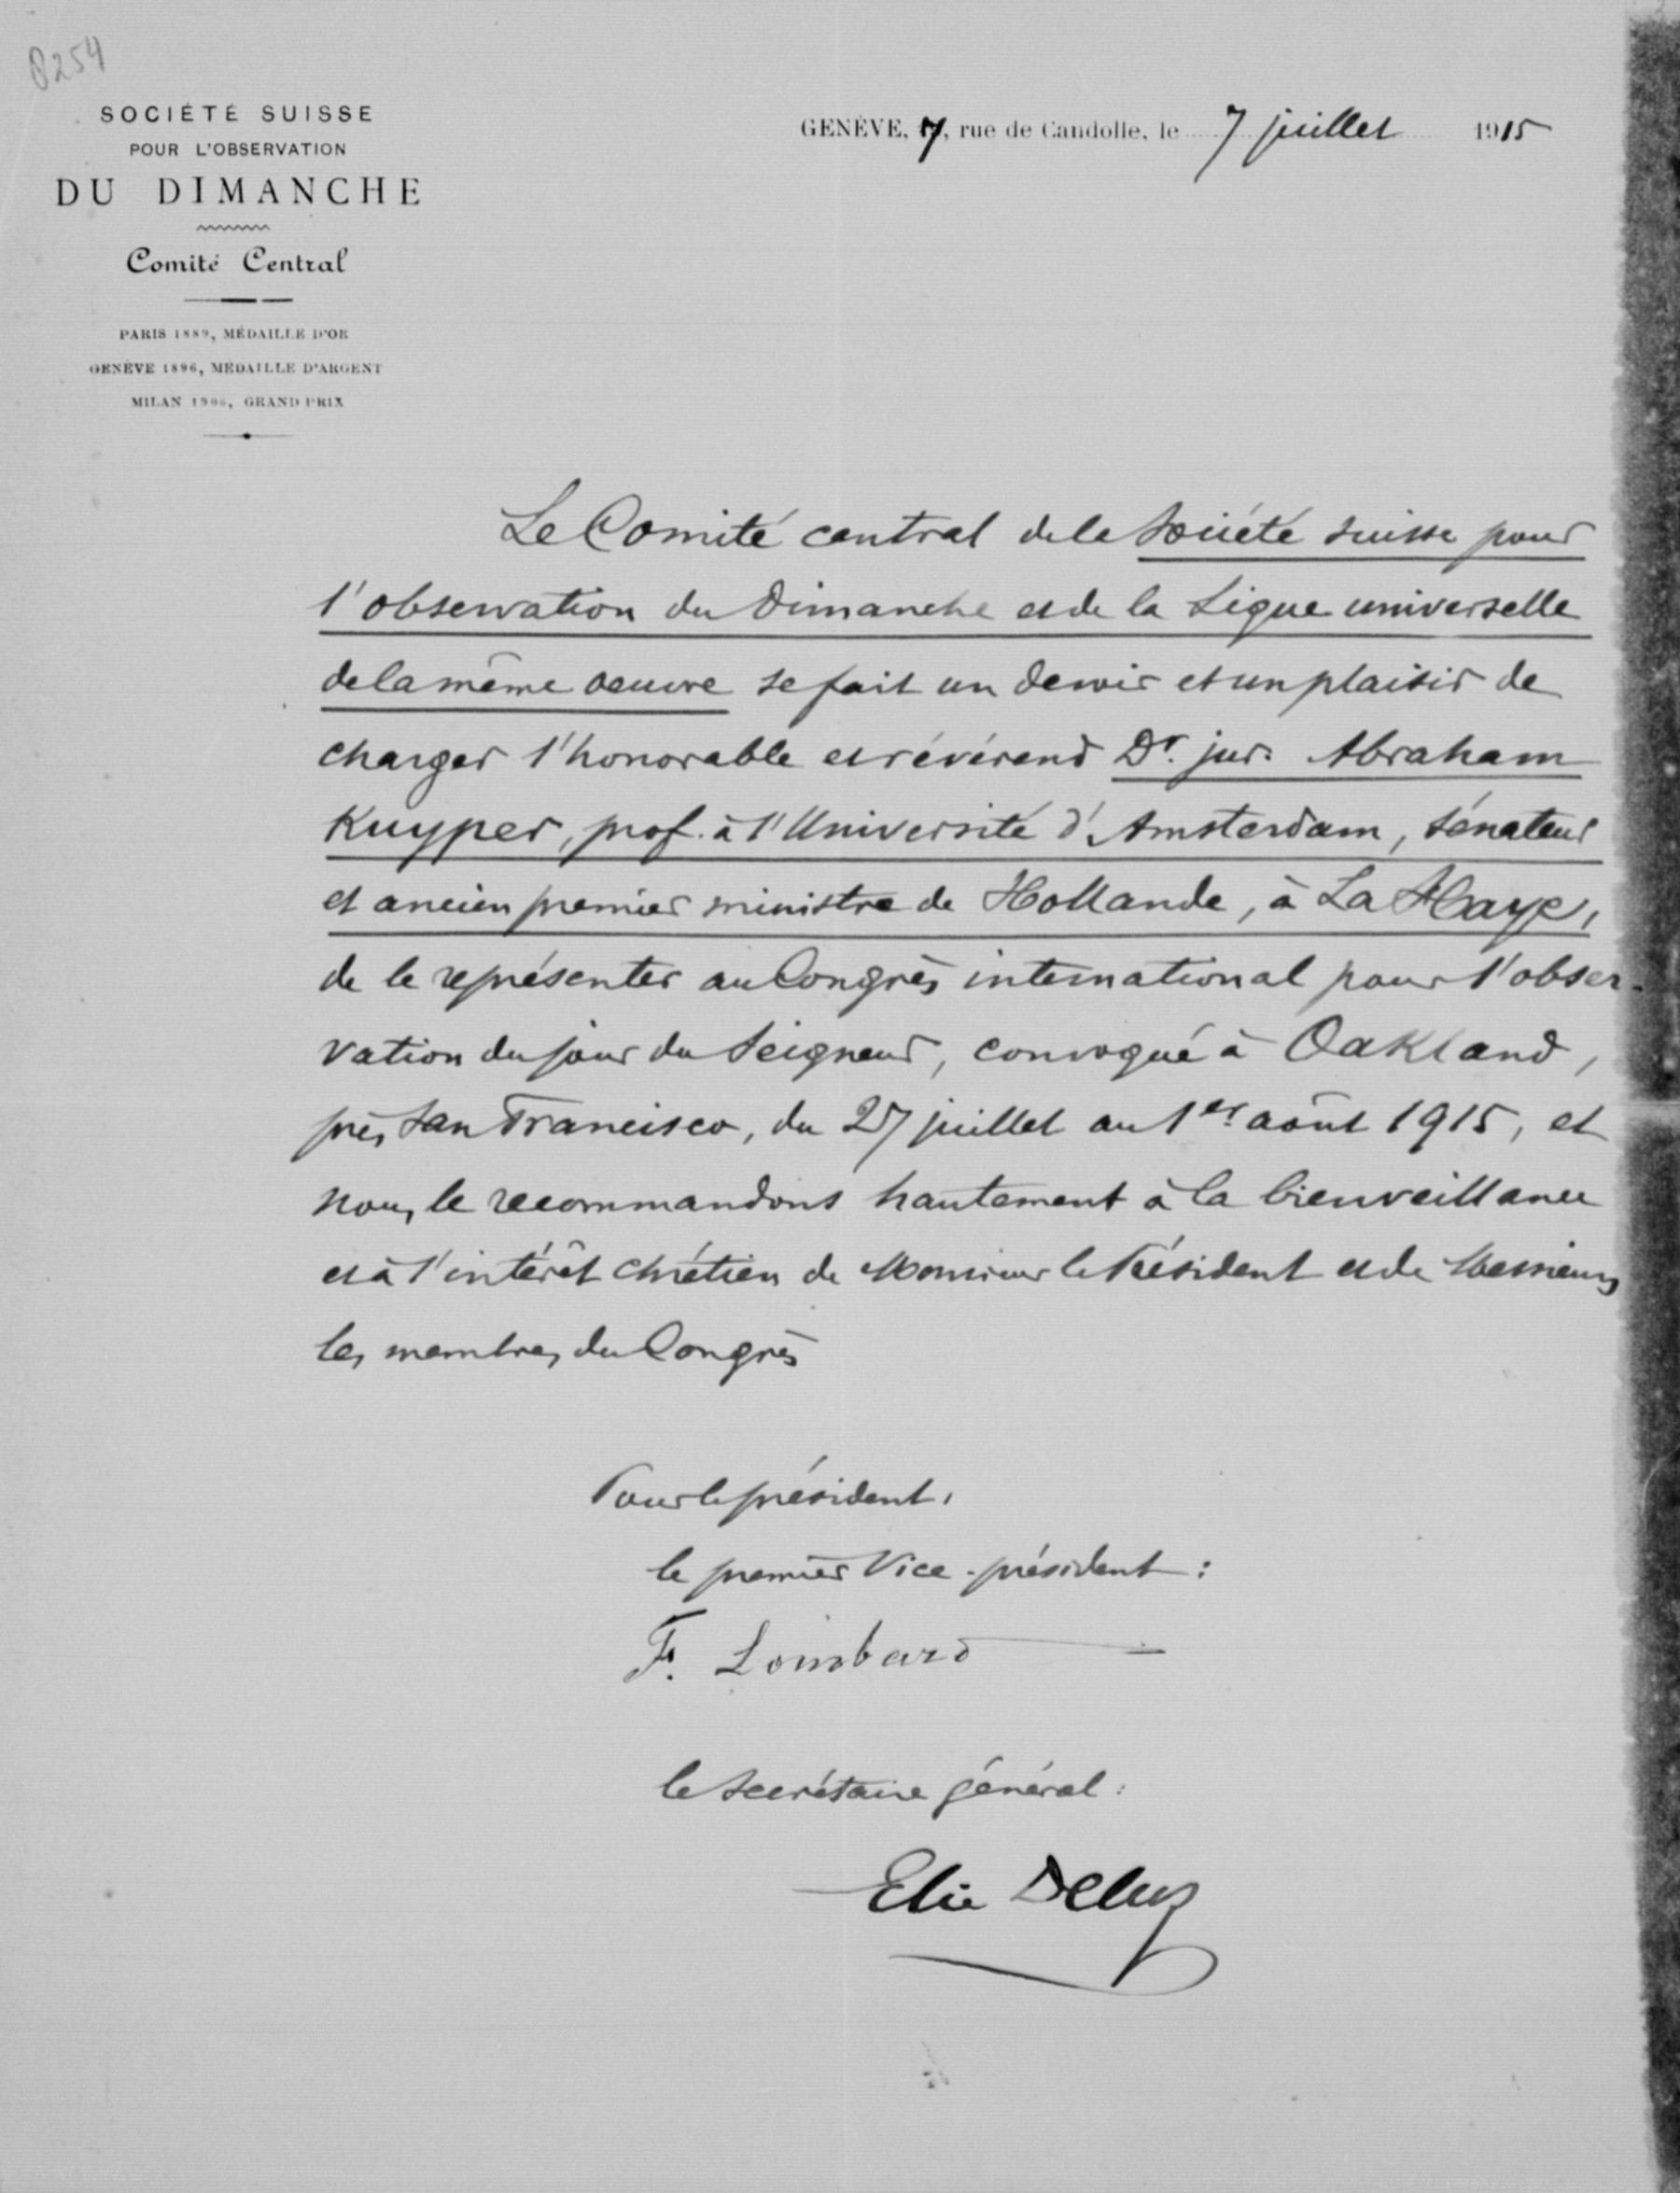 8254
SOCIÉTÉ SUISSE
POUR L'OBSERVATION
DU DIMANCHE
Comité Central
PARIS 1889, MÉDAILLE D'OR
GENÈVE 1896, MÉDAILLE D'ARGENT
MILAN 1906, GRAND PRIX
GENÈVE, 7, rue de Candolle, le 7 juillet 1915
Le Comité central de la Société suisse pour
l'observation du Dimanche et de la Ligue universelle
de la même oeuvre se fait un devoir et un plaisir de
charger l'honorable et révérend Dr. jur. Abraham
Kuyper, prof. à l'Université d'Amsterdam, sénateur
et ancien premier ministre de Hollande, à La Haye,
de le représenter au Congrès international pour l'obser-
vation du jour du Seigneur, convoqué à Oakland,
près San Francisco, du 27 juillet au 1er août 1915, et
nous le recommandons hautement à la bienveillance
et à l'intérêt chrétien de Monsieur le Président et de Messieurs
les membres du Congrès
Pour le président,
le premier Vice-président :
F. Lombard
le secrétaire général :
Elie Deluz